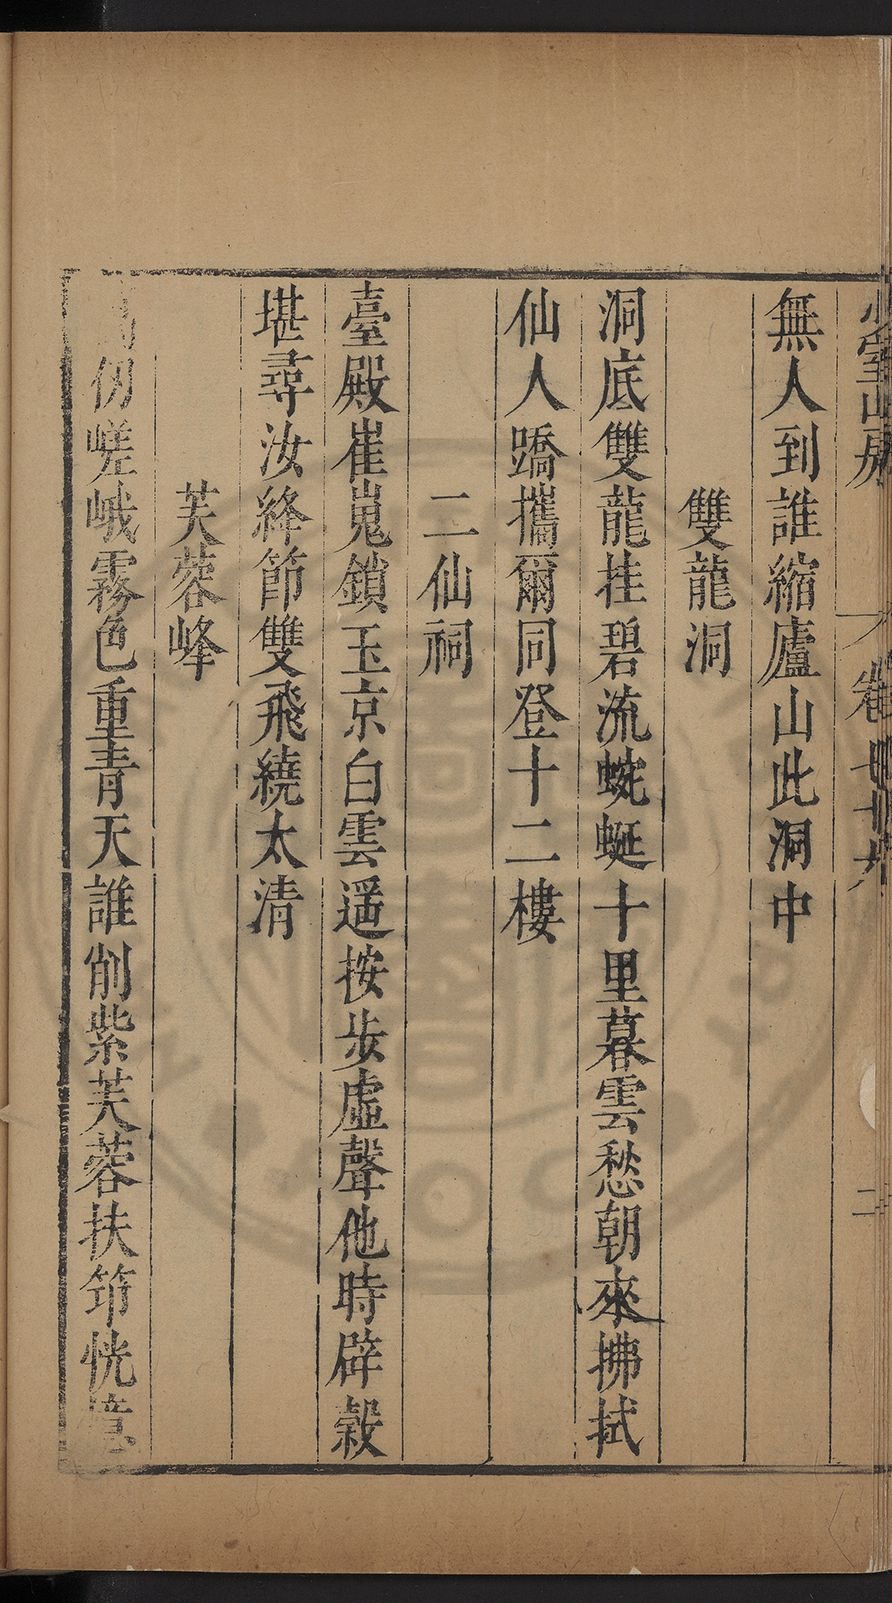 室山房 卷七十六 二
無人到誰縮廬山此洞中
雙龍洞
洞底雙龍挂碧流蜿蜒十里暮雲愁朝來拂拭
仙人蹻攜爾同登十二樓
二仙祠
臺殿崔嵬鎖玉京白雲遥按步虛聲他時辟穀
堪尋汝絳節雙飛繞太清
芙蓉峰
仞嵯峨霧色重青天誰削紫芙蓉扶笻恍憶